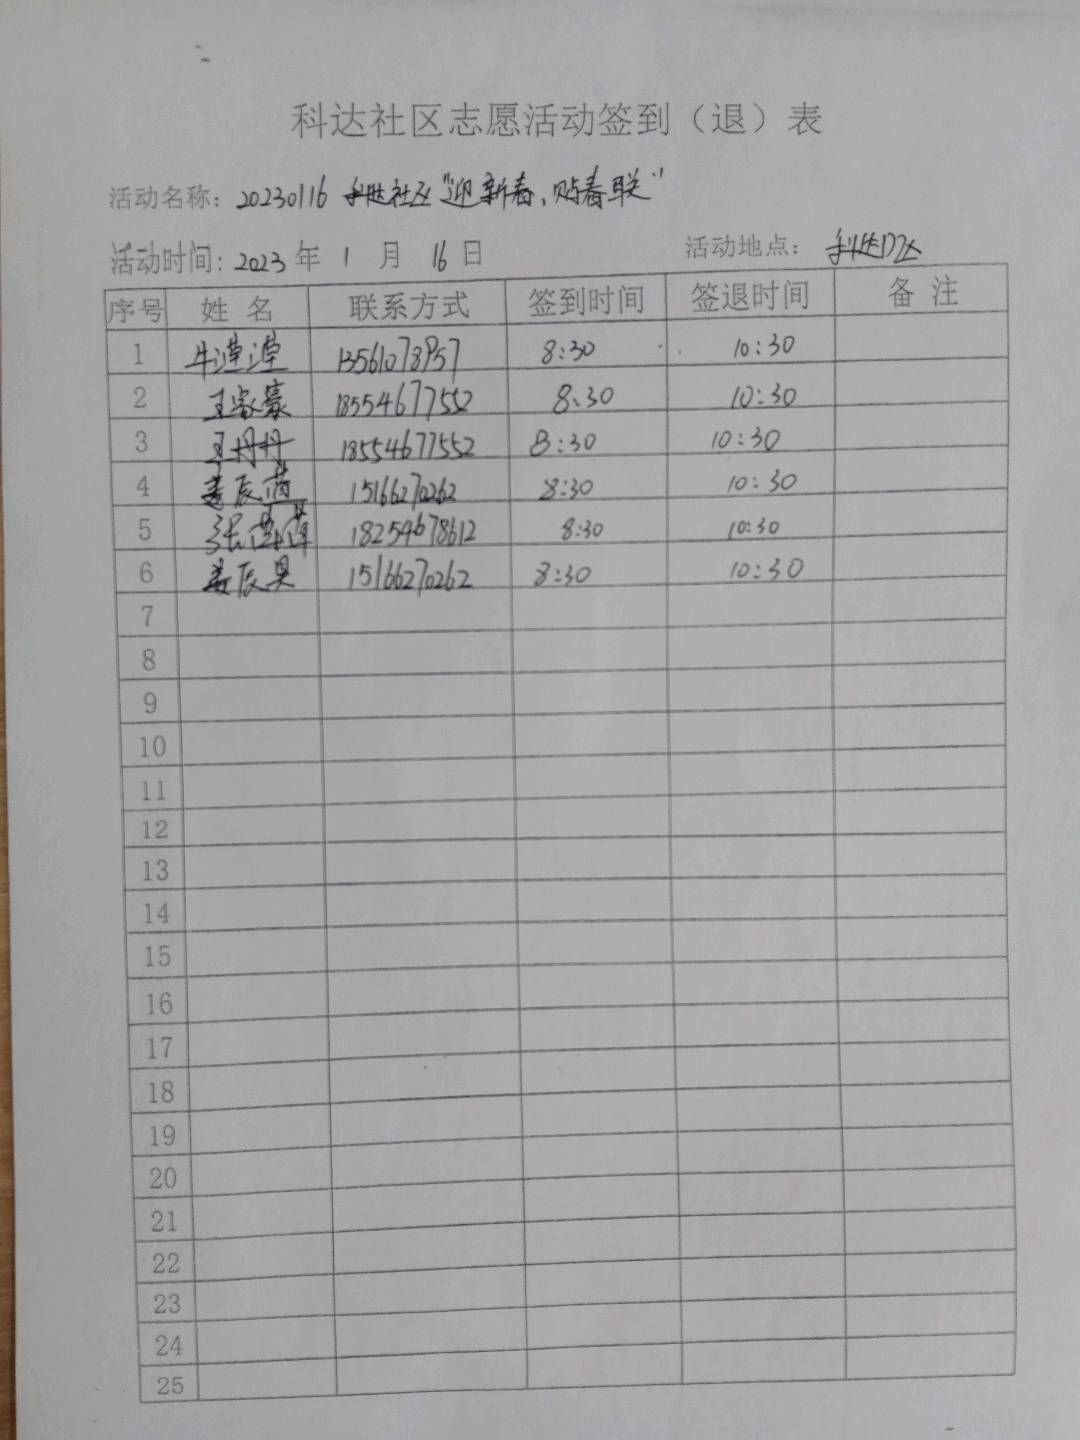 科达社区志愿活动签到（退）表
活动名称：20230116 科达社区"迎新春、贴春联"
活动时间：2023 年 1 月 16 日 活动地点：科达D区
序号 姓 名 联系方式 签到时间 签退时间 备 注
1 牛滢滢 13561078957 8:30 10:30
2 王家豪 18554677552 8:30 10:30
3 王丹丹 18554677552 8:30 10:30
4 姜辰茜 15166270262 8:30 10:30
5 张 18254678612 8:30 10:30
6 姜辰昊 15166270262 8:30 10:30
7
8
9
10
11
12
13
14
15
16
17
18
19
20
21
22
23
24
25